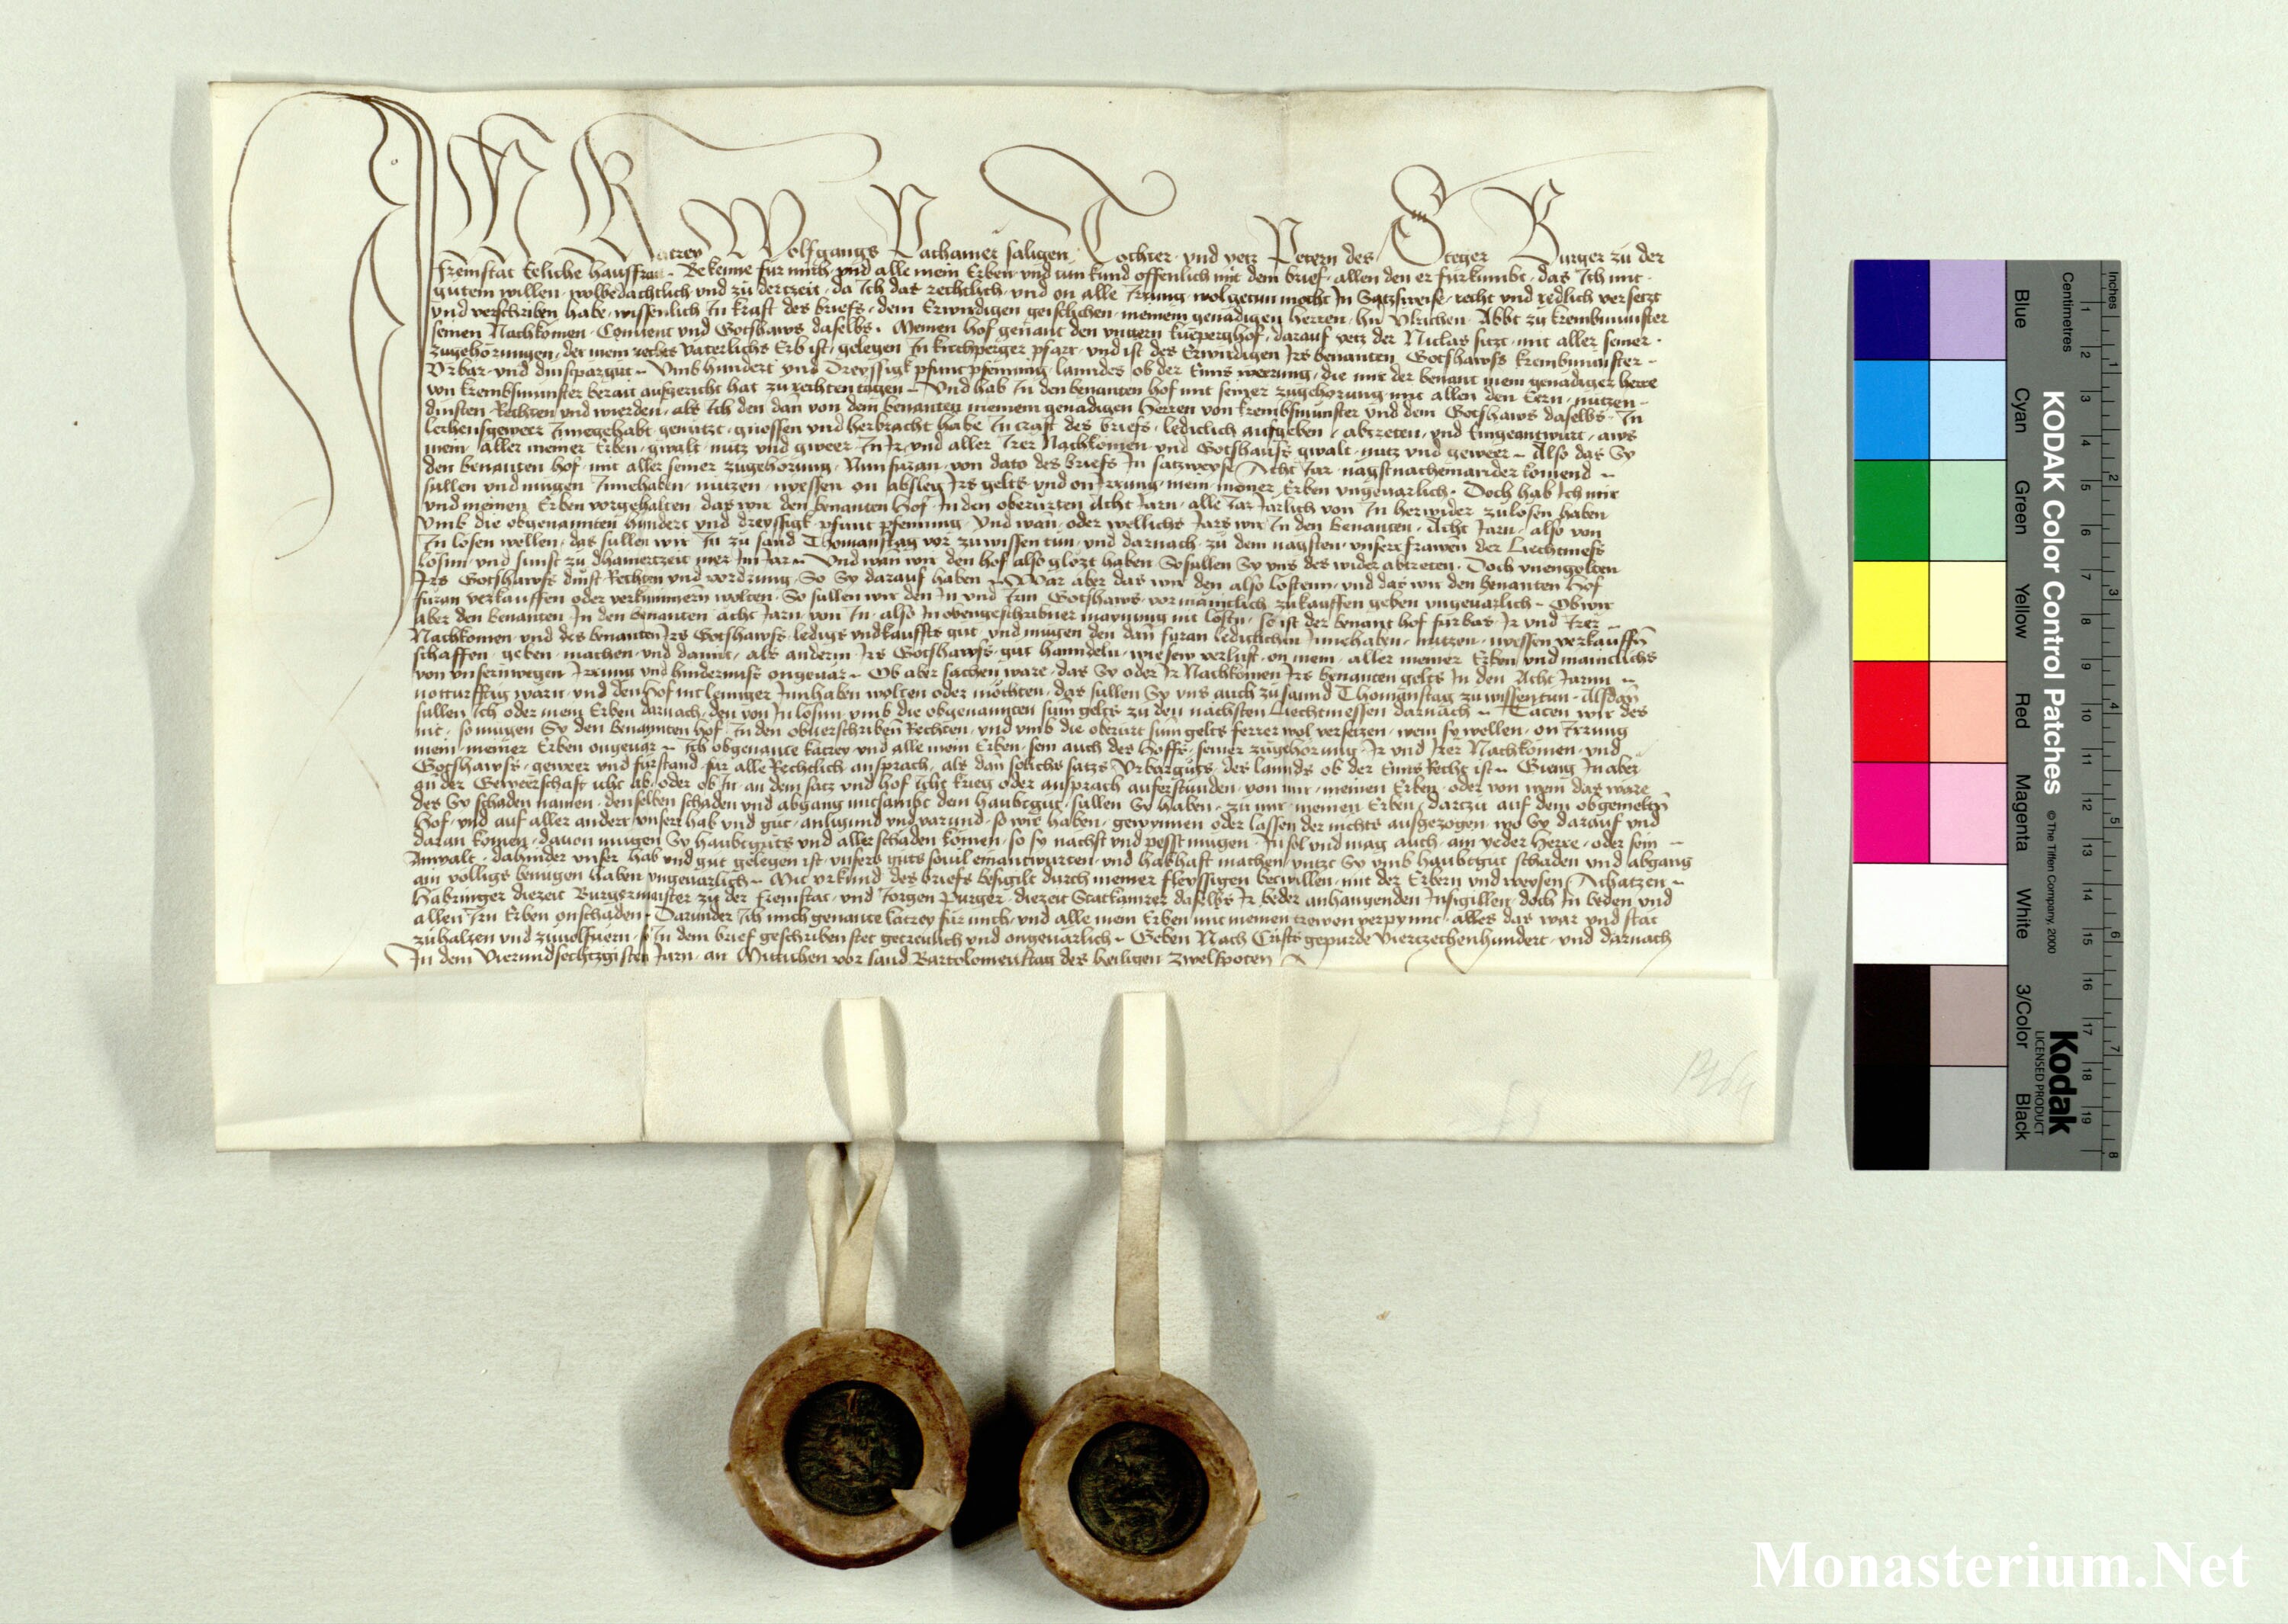 Ich Katrey Wolfgangs Pachamer saligen Tochter · und yetz Petern des Steger Burger zu der
freinstat Eeliche hausfraw · Bekenne fur mich und alle mein Erben und tun kund offenlich mit dem brief · allen den er furkumbt · das Ich mit ·
gutem willen · wolbedachtlich und zu der tzeit · da Ich das rechtlich und on alle Irrung wol getun mocht In Satzsweise · recht und redlich versetzt
und verschriben habe · wissenlich In kraft des briefs · dem Erwirdigen geistlichen · meinem genadigen herren · hn Ulrichen · Abbt zu krembmunster
seinen Nachkomen · Convent und Gotshaws daselbs · Meinen hof genant den kueperghof · darauf yetz der Niclas sitzt · mit aller seiner ·
zugehorungen · der mein rechts vaterlichs Erb ist · gelegen In kirchperger pfarr · und ist des Erwirdigen Irs benanten Gotshawss krembmunster
Urbar und dinstpargut · Umb hundert und Dreyssigk pfunt pfenning · lanndes ob der Enns werung · die mir der benant mein genadiger herre
von krembsmunster berait ausgericht hat zu rechten tagen · Und hab In den benanten hof mit seiner zugehorung mit allen den Eern · nutzen
dinsten Rechten und wierden · als Ich den dan von dem benanten meinem genadigen herren von krembsmunster und dem Gotshaws daselbs · In
lechensgewer Innegehabt genutzt · gnossen und herbracht habe In craft des briefs · lediclich aufgeben · abtreten · und Eingeantwurt · aws
mein · aller meiner Erben · gwalt · nutz und gweer · In Ir und aller Irer Nachkomen · und Gotshauss gwalt · nutz und geweer · Also das Sy
den benanten hof · mit aller seiner zugehorung · Nun furan · von dato des briefs In satzweyse Acht Jar · nagst nacheinander komend
sullen und mugen Innehaben · nutzen · niessen on absleg Irs gelts · und on Irrung · mein · meiner Erben ungevarlich · Doch hab Ich mir
und meinen Erben vorgehalten · das wir den benanten Hof · In den oberurten Acht Jarn · alle Jar Jarlich von In herwider zulosen haben
Umb die obgenannten hundert und dreyssigk pfunt pfenning · Und wan · oder wellichs Jars wir In den benanten · Acht Jarn · also von
In losen wellen · das sullen wir In zu sand Thomanstag vor zuwissen tun · und darnach · zu dem nagsten · unsere frawen der Liechtmess
losun · und sunst zu dhainer tzeit mer Im Jar · Und wan wir den hof also glozt haben So sullen Sy uns des wider abtreten · Doch unengolten
Irs Gotshawss dinst · Rechten und vordrung · So Sy darauf haben · War aber das wir den also lostenn · und das wir den benanten Hof
furan verkauffen oder verkumern wolten · So sullen wir den In und Irm Gotshaws · vor zukauffen geben ungevarlich · Ob wir
aber den benanten In den benanten acht Jarn von In · also In obengeschribner maynung nit lostn · so ist der benant hof furbas · Ir und Irer
Nachkomen · und des benanten Irs Gotshawss · ledigs und kauffts gut · und mugen den dan furan lediclichen Innehaben · nutzen · niessen verkauffn
schaffen · geben · machen · und damit · als anderm Irs Gotshawss · gut hanndeln · wie sew verlust · on mein · aller meiner Erben · und mainclichs
von unsern wegen Irrung und hindernuss ongevar · Ob aber sachen ware · das Sy oder Ir Nachkomen Irs benanten gelts In den Acht Jarnn
notturfftig warn · und den hof nit lenniger Innhaben wolten oder mochten · das sullen Sy uns auch zu sannd Thomanstag zuwissen tun · Alsdan
sullen Ich oder mein Erben darnach · den von In losun · umb die obgenannten sum gelts zu den nachsten Liechtmessen darnach · Taten wir des
nit · so mugen Sy den benannten hof · In den obverschriben Rechten · und umb die oberurt sum gelts ferrer wol versetzen · wem sy wellen · on Irrung
mein · meiner Erben ongevar · Ich obgenante katrey · und alle mein Erben · sein auch des hoffs · seiner zugehorung · Ir und Irer Nachkomen · und
Gotshawss · geweer und furstand · fur alle Rechtlich ansprach · als dan solichs satzs Urbarguts · des lannds ob der Enns Recht ist · Gieng In aber
an der Gewerschaft icht ab · oder ob In · an dem satz und hof icht krieg oder ansprach auferstunden · von mir · meinen Erben · oder von wem das ware
des Sy schaden namen · denselben schaden und abgang mitsambt dem haubtgut · sullen Sy haben · zu mir · meinen Erben · dartzu auf dem obgemeltn
Hof · und auf aller anderr · unserr hab und gut · anligund und varund · so wir haben · gewynnen oder lassen der nichts ausgezogen · wo Sy darauf und
daran komen · davon mugen Sy haubtguts und aller schaden komen · so sy nachst und pesst mugen · In sol und mag auch · ain yeder Herre · oder sein
Anwalt · dahinder unser hab und gut gelegen ist · unsers guts sovil einantwurten · und habhaft machen · untzt Sy umb haubtgut schaden und abgang
ain volligs benugen haben ungevarlich · Mit urkund des briefs besigilt durch meiner fleyssigen bet willen · mit der Erbern und weysen Achatzen
Habringer diezeit Burgermaister zu der freinstat · und Jorgen Purger · diezeit Statkamrer daselbs Ir beder anhangenden Insigillen · doch In beden und
allen Irn Erben on schaden · Darunder Ich mich genante katrey fur mich · und alle mein Erben · mit meinen trewen verpynnt · alles das war und stat
zuhalten und zuvolfuern · so In dem brief geschriben stet getreulich und ongevarlich · Geben Nach Cristi gepurde Viertzechenhundert · und darnach
In dem Vierundsechtzigisten Jarn · an Mitichen vor sand Bartolomeustag des heiligen zwelfpoten
1464
KODAK Color Control Patches
© The Tiffen Company, 2000
Kodak
LICENSED PRODUCT
Inches
Centimetres
1 2 3 4 5 6 7 8 9 10 11 12 13 14 15 16 17 18 19
1 2 3 4 5 6 7 8
Blue Cyan Green Yellow Red Magenta White 3/Color Black
Monasterium.Net